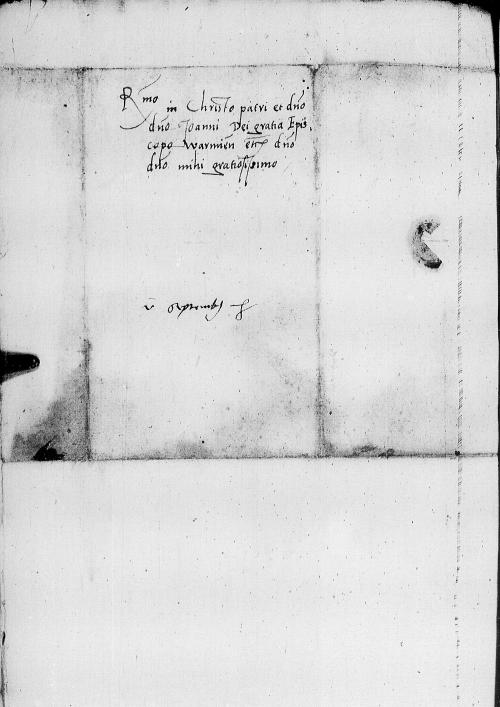 Rmo in Christo patri et dno
dno Joanni Dei gratia Epis,
copo Warmien etc dno
dno mihi gratiosissimo
Septembris